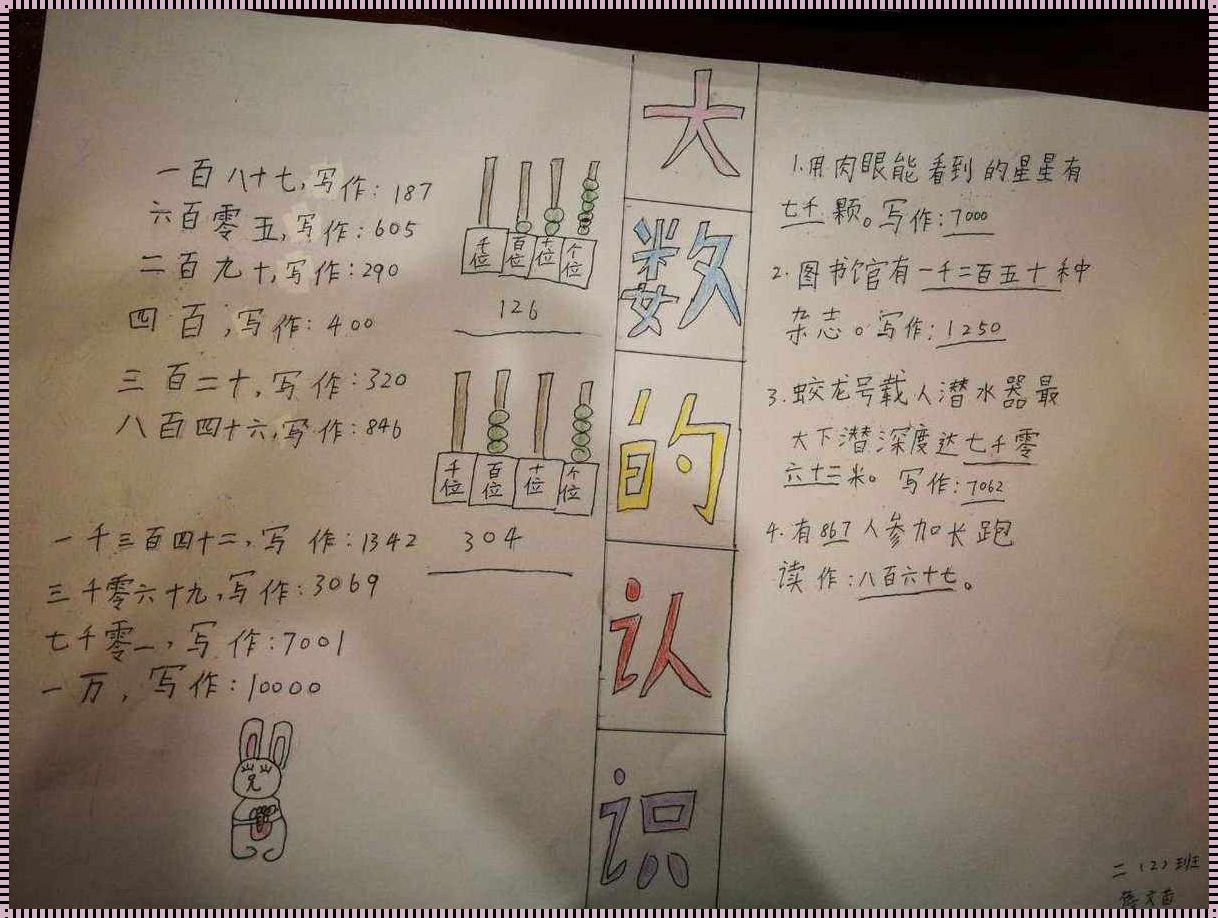 一百八十七,写作:187
六百零五,写作:605
二百九十,写作:290
四百,写作:400
三百二十,写作:320
八百四十六,写作:846
一千三百四十二,写作:1342
三千零六十九,写作:3069
七千零一,写作:7001
一万,写作:10000
千位 百位 十位 个位
126
千位 百位 十位 个位
304
大
数
的
认
识
1.用肉眼能看到的星星有
七千颗。写作:7000
2.图书馆官有一千二百五十种
杂志。写作:1250
3.蛟龙号载人潜水器最
大下潜深度达七千零
六十二米。写作:7062
4.有867人参加长跑
读作:八百六十七。
二(2)班